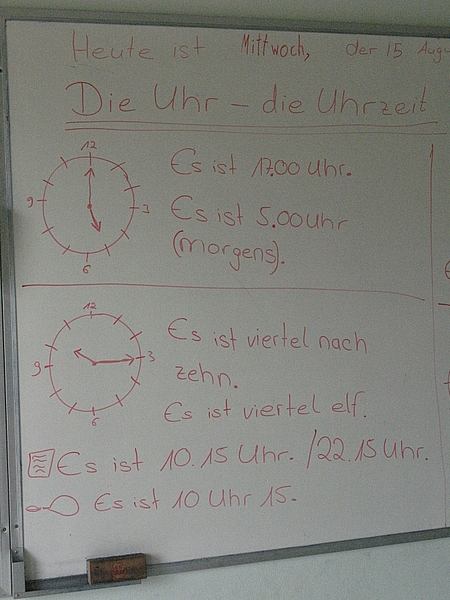 Heute ist Mittwoch, der 15 Augu
Die Uhr – die Uhrzeit
12
9
3
6
Es ist 17.00 Uhr.
Es ist 5.00 Uhr
(morgens).
12
9
3
6
Es ist viertel nach
zehn.
Es ist viertel elf.
Es ist 10.15 Uhr. /22.15 Uhr.
Es ist 10 Uhr 15.